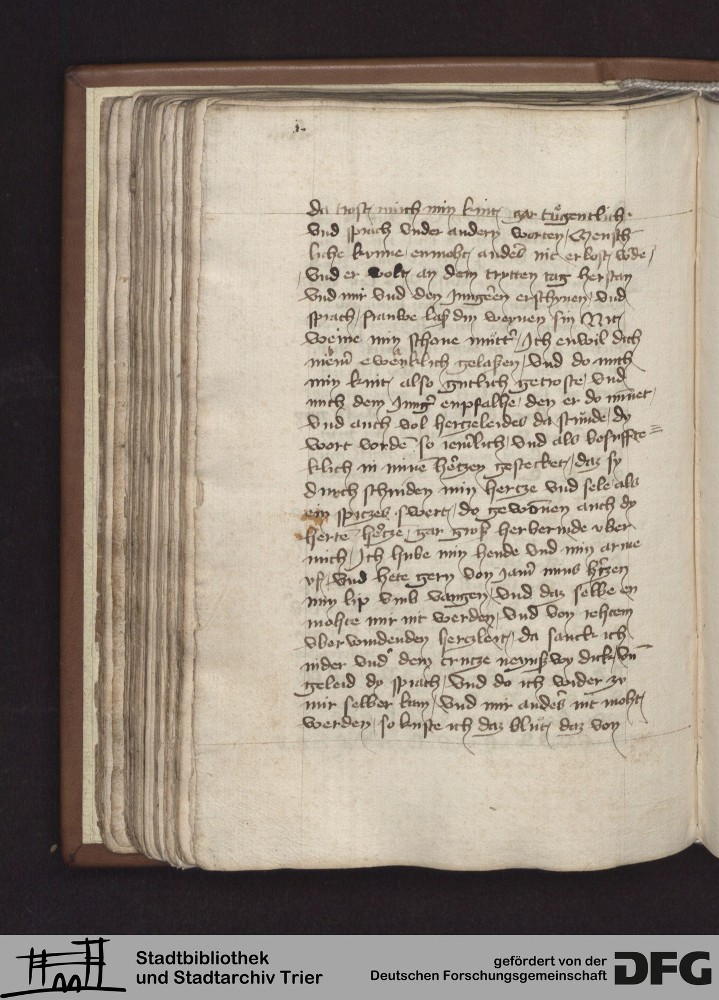 da trost mich min kint gar tůgentlich
vnd sprach vnder andern worten Mensch
liche kunne enmoht anders nit erlost w̄de
vnd er wolt an dem trytten tag herstan
vnd mir vnd den jungern erschynen vnd
sprach frauwe laß din weynen sin Nit
weine min schone mutt' Ich enwil dich
ewenklich gelaßen vnd do mich
min kint also gutlich getroste vnd
mich dem jung' enpfalhe den er do minnet
vnd auch vol hertzeleides da stūnde dy
wort vordē so iemlich vnd als
klich in mine hertzen gestecket daz sy
durch schniden min hertze vnd sele als
ein spiczes swert do gewōnen auch dy
hertē hertze gar groß herbermde vber
mich Ich hube min hende vnd min arme
vf vnd hete gern von jam' mins hertzen
min lip vmb vangen vnd daz selbe en
mohte mir nit werden vnd von rehtem
vberwindenden herczleit da sanck ich
nider vnd' dem crucze neyns wy dick vn̄
geleid dy sprach vnd do ich wider zu
mir selber kam vnd mir anders nit moht
werden so kuste ich daz blut daz von
Stadtbibliothek
und Stadtarchiv Trier
gefördert von der
Deutschen Forschungsgemeinschaft
DFG